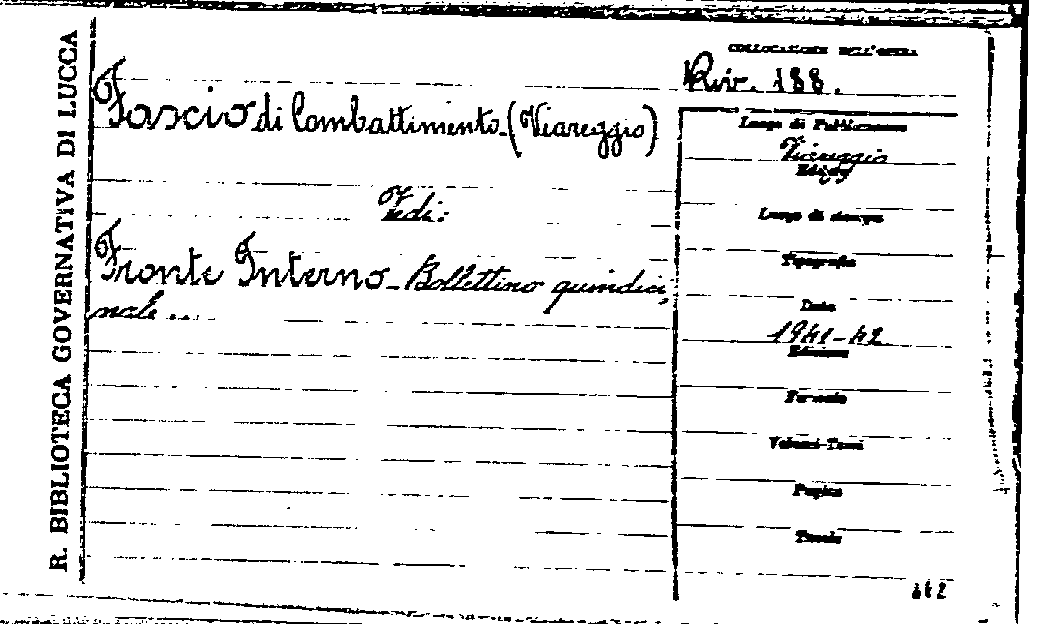 R. BIBLIOTECA GOVERNATIVA DI LUCCA
COLLOCAZIONE DELL'OPERA
Riv. 188.
Fascio di Combattimento - (Viareggio)
Vedi:
Fronte Interno - Bollettino quindici,
nale ...
Luogo di Pubblicazione
Viareggio
Editore
Luogo di stampa
Tipografia
Data
1941-42
Edizione
Formato
Volumi-Tomi
Pagine
Tavole